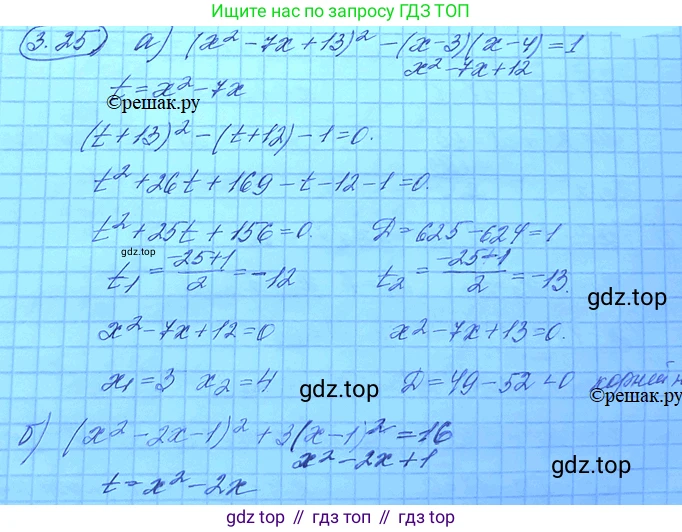 Ищите нас по запросу ГДЗ ТОП
3.25 а) (x² - 7x + 13)² - (x-3)(x-4) = 1
x² - 7x + 12
t = x² - 7x
©решак.ру
(t + 13)² - (t + 12) - 1 = 0.
t² + 26t + 169 - t - 12 - 1 = 0.
t² + 25t + 156 = 0. D = 625 - 624 = 1
gdz.top
t₁ = (-25+1)/2 = -12 t₂ = (-25-1)/2 = -13.
gdz.top
x² - 7x + 12 = 0 x² - 7x + 13 = 0.
x₁ = 3 x₂ = 4 D = 49 - 52 < 0 корней н
gdz.top
©решак.ру
б) (x² - 2x - 1)² + 3(x - 1)² = 16
x² - 2x + 1
t = x² - 2x
gdz.top
gdz.top // гдз.топ // гдз топ